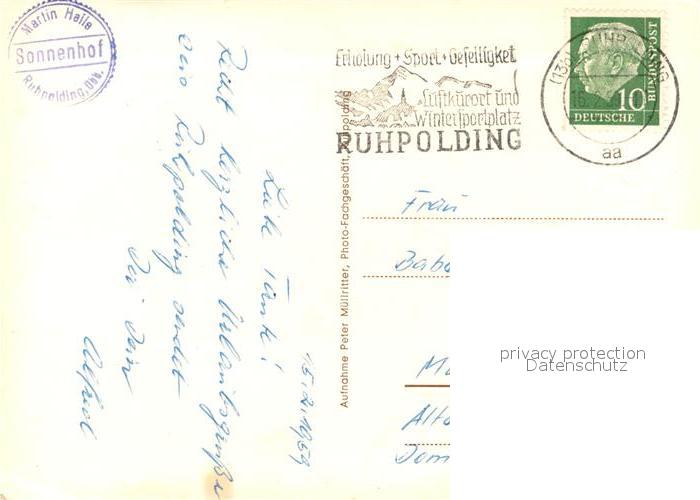 Martin Halle
Sonnenhof
Ruhpolding, Obb.
Erholung + Sport + Geselligkeit
Luftkurort und
Wintersportplatz
RUHPOLDING
(13b) RUHPOLDING
aa
10
DEUTSCHE
BUNDESPOST
Aufnahme Peter Müllritter, Photo-Fachgeschäft, Ruhpolding
15.2.1959
Liebe Tante!
Recht herzliche Urlaubsgrüße
aus Ruhpolding sendet
Dir Dein
Alfred
Frau
Babe
Alto
Dom
privacy protection
Datenschutz